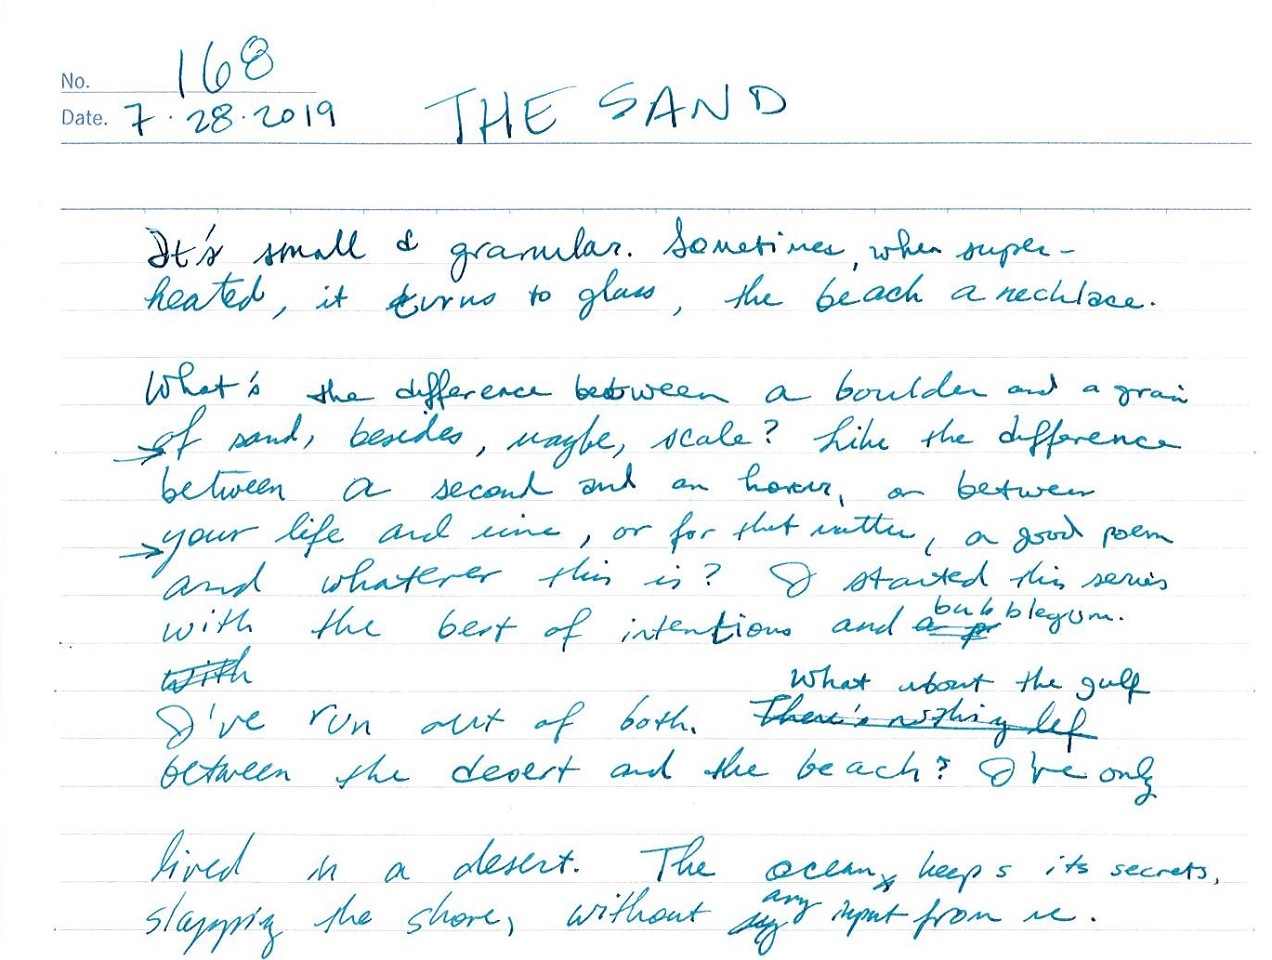 No. 168
Date. 7·28·2019 THE SAND
It's small & granular. Sometimes, when super-
heated, it turns to glass, the beach a necklace.
What's the difference between a boulder and a grain
of sand, besides, maybe, scale? Like the difference
between a second and an hour, or between
your life and mine, or for that matter, a good poem
and whatever this is? I started this series
with the best of intentions and bubblegum.
With
I've run out of both. What about the gulf
There's nothing lef
between the desert and the beach? I've only
lived in a desert. The ocean keeps its secrets,
slapping the shore, without any input from me.